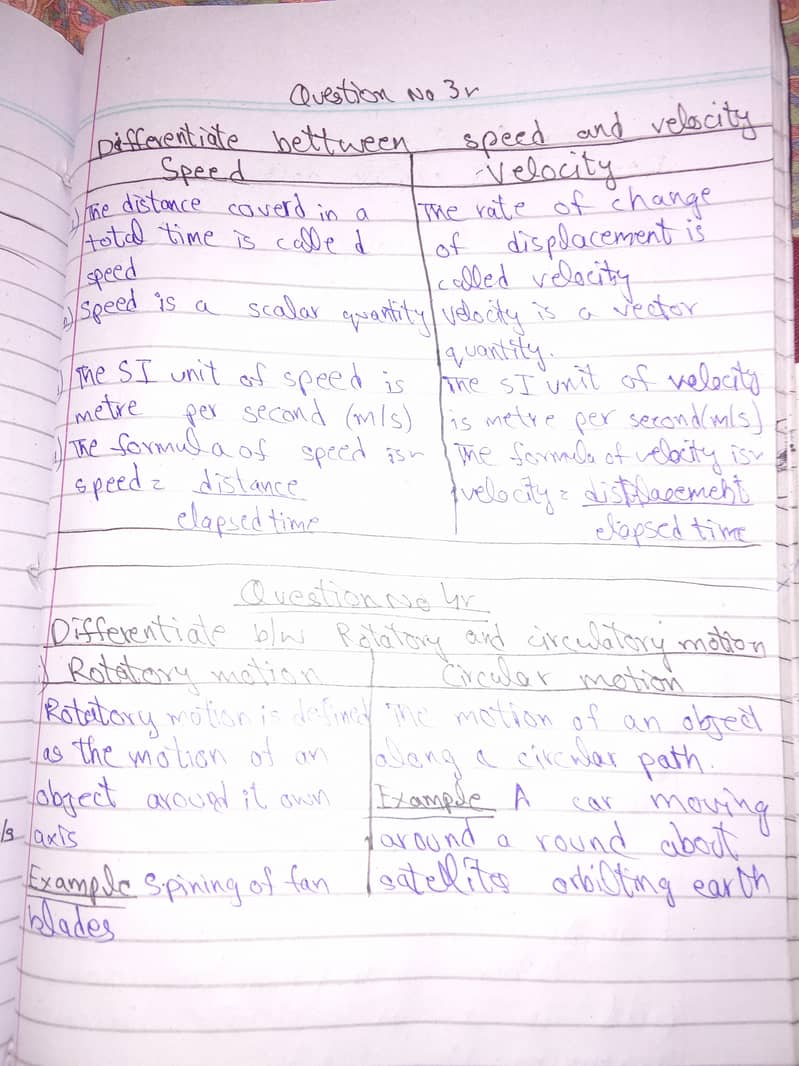 Question No 3r
Differentiate bettween speed and velocity
Speed Velocity
1) The distance coverd in a The rate of change
total time is called of displacement is
speed called velocity
2) Speed is a scalar quantity velocity is a vector
quantity.
The SI unit of speed is The SI unit of velocity
metre per second (m/s) is metre per second (m/s)
The formula of speed isr The formula of velocity isr
speed = distance velocity = displacement
elapsed time elapsed time
Question No 4r
Differentiate b/w Rotatory and circulatory motion
Rotatory motion Circular motion
Rotatory motion is defined The motion of an object
as the motion of an along a circular path.
object around it own Example A car moving
axis around a round about
Example Spining of fan satellites orbiting earth
blades